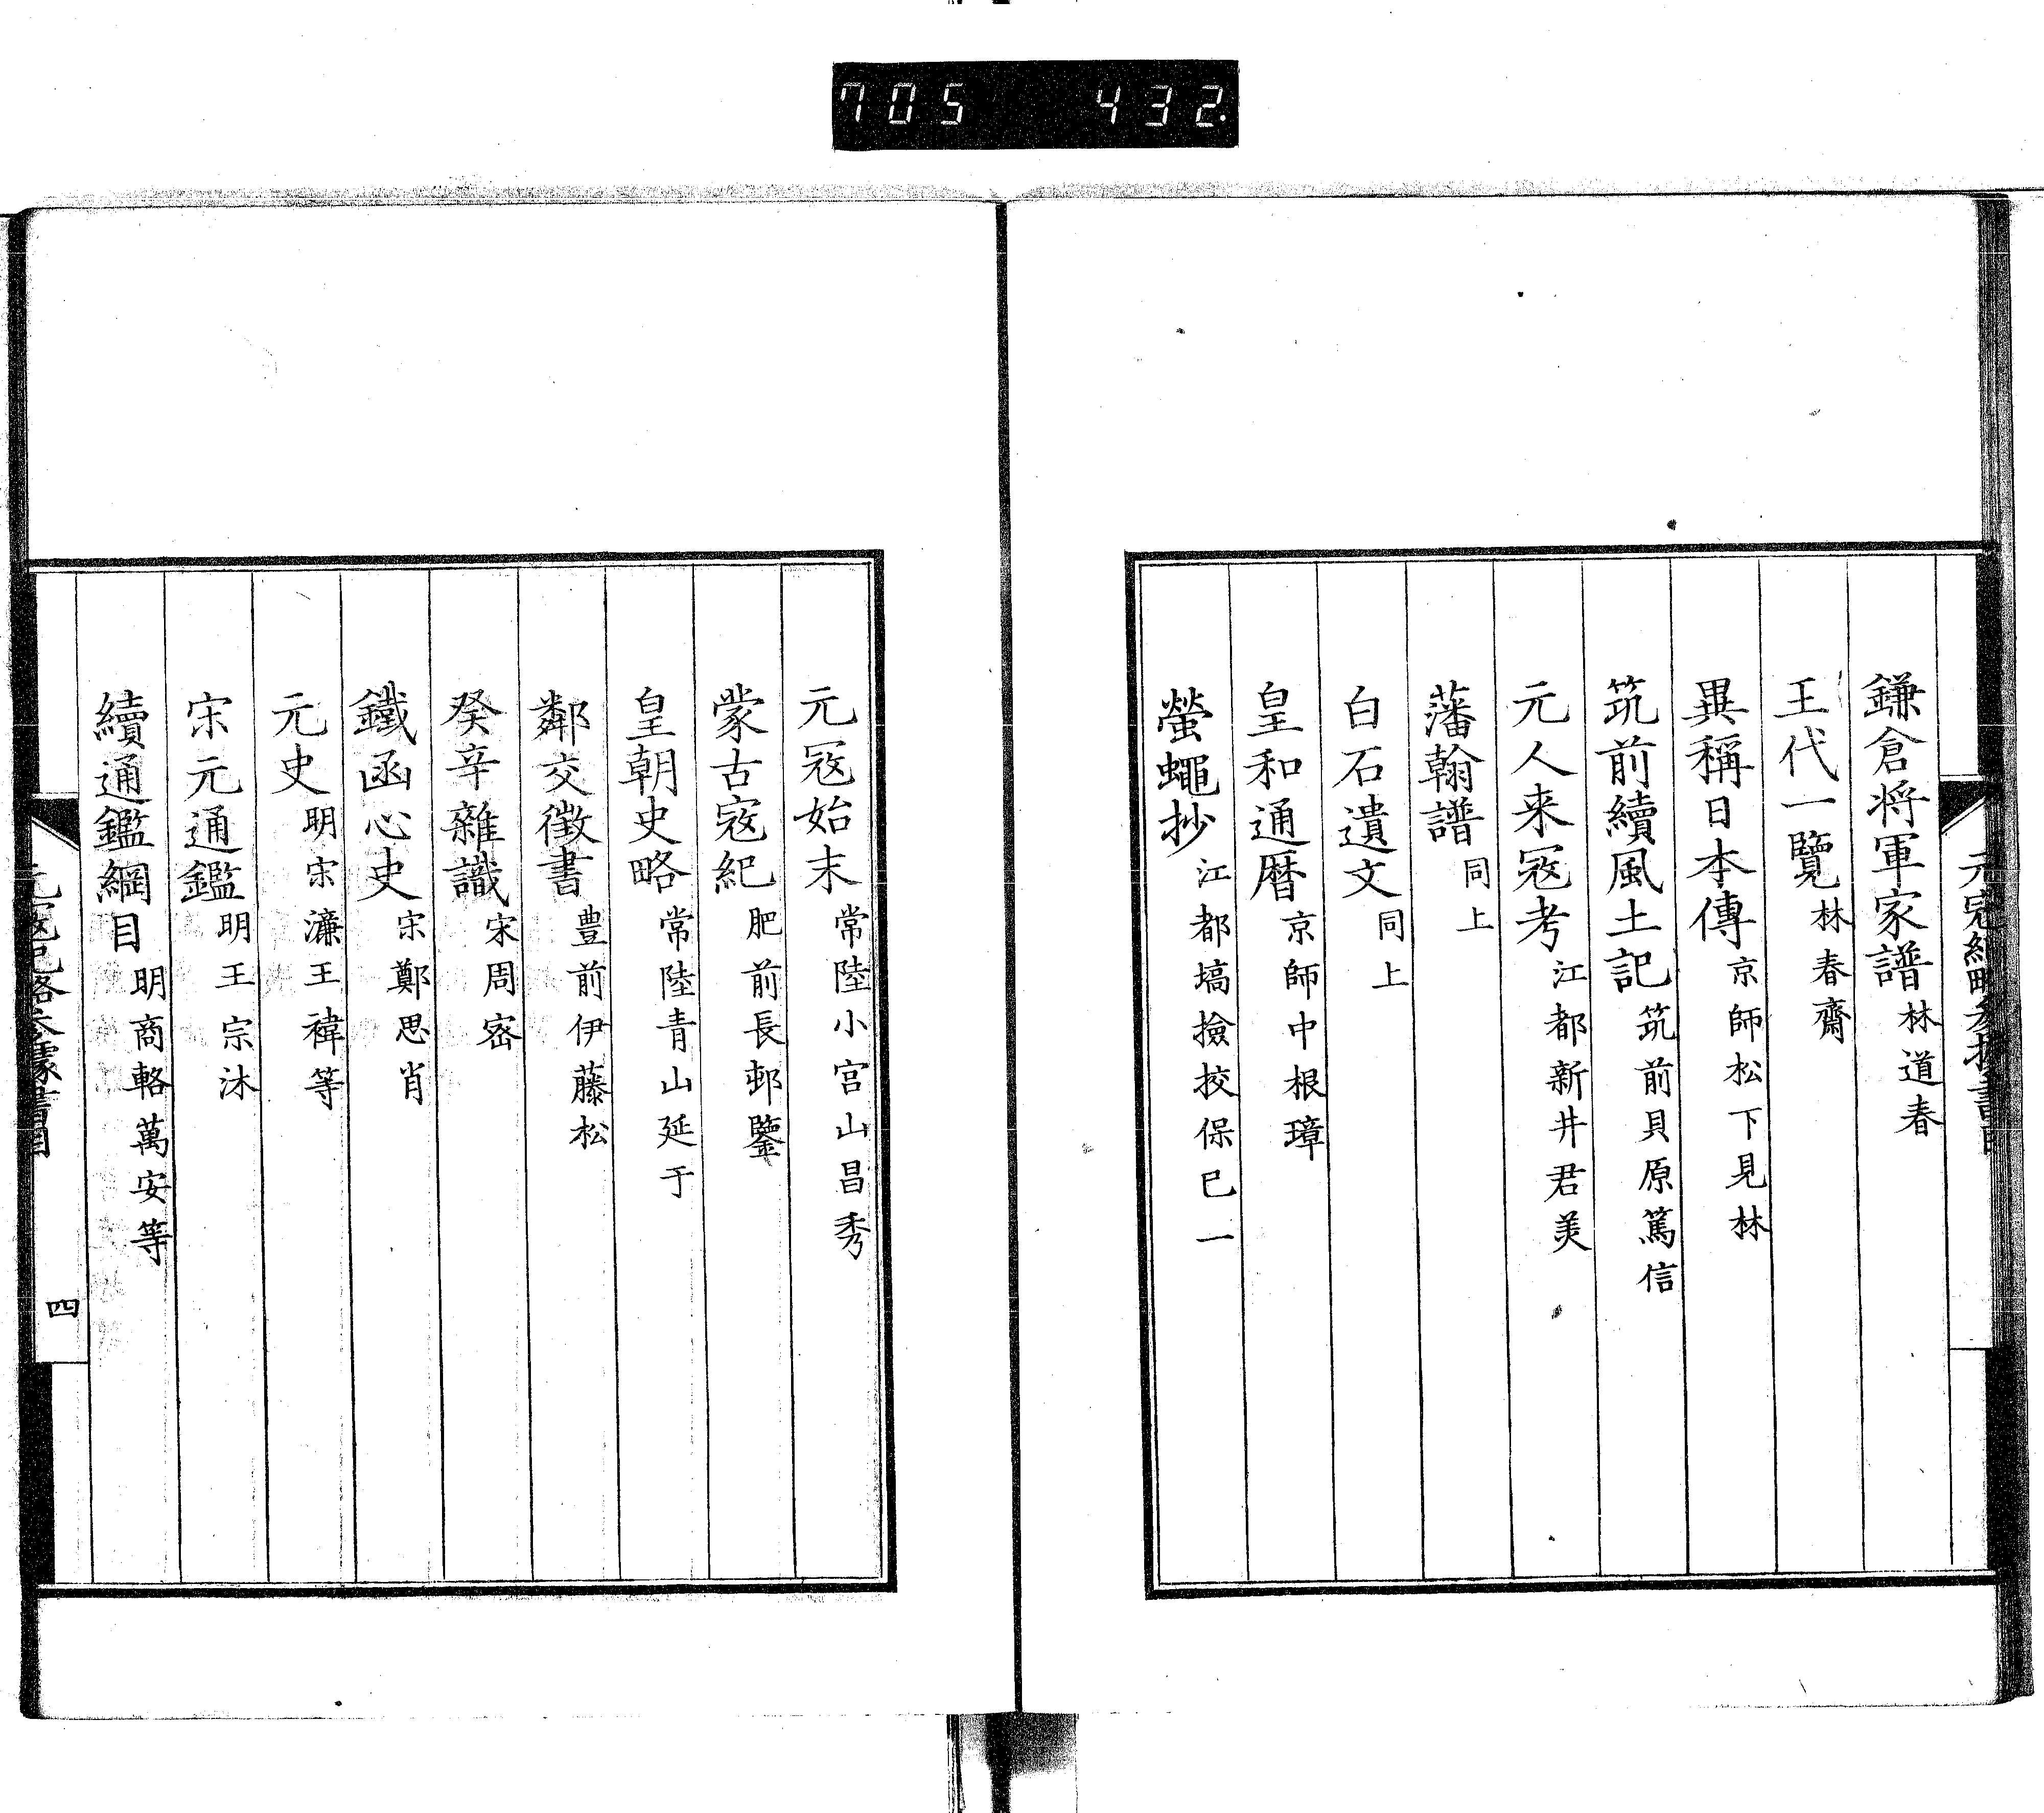 705 432.
鎌倉将軍家譜 林道春
王代一覽 林春齋
異稱日本傳 京師松下見林
筑前續風土記 筑前貝原篤信
元人来寇考 江都新井君美
藩翰譜 同上
白石遺文 同上
皇和通暦 京師中根璋
螢蠅抄 江都塙撿挍保巳一
元寇始末 常陸小宮山昌秀
蒙古寇紀 肥前長邨鑒
皇朝史略 常陸青山延于
鄰交徵書 豊前伊藤松
癸辛雜識 宋周密
鐵函心史 宋鄭思肖
元史 明宋濂王褘等
宋元通鑑 明王宗沐
續通鑑綱目 明商輅萬安等
四